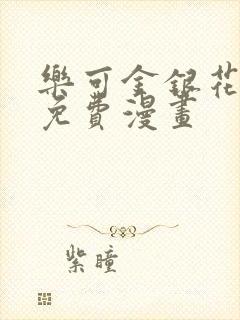 樂可金銀花
免費漫畫
紫瞳